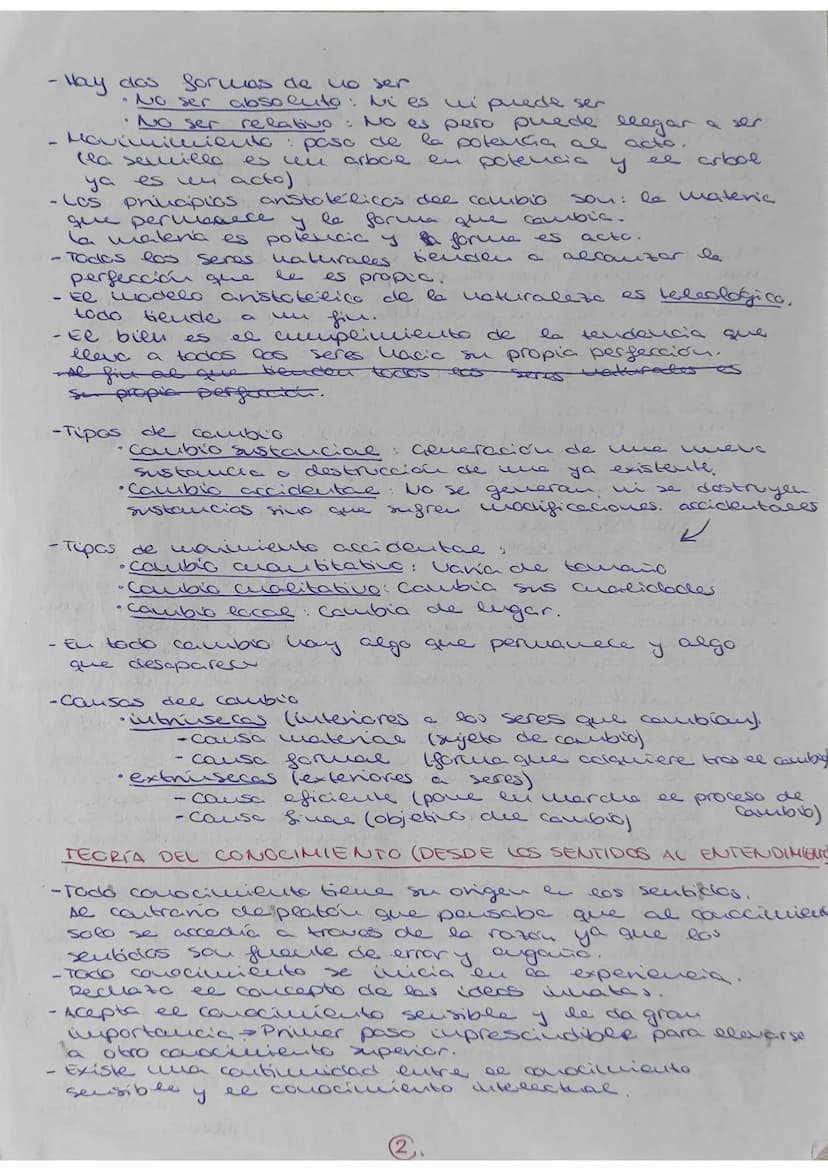 - Hay dos formas de no ser
· No ser absoluto: Ni es ni puede ser
· No ser relativo: No es pero puede llegar a ser
- Movimimiento: paso de la potencia al acto.
(la semilla es un arbol en potencia y el arbol
ya es un acto)
- Los principios aristotélicos del cambio son: la materia
que permanece y la forma que cambia.
La materia es potencia y la forma es acto.
- Todos los seres naturales tienden a alcanzar la
perfección que le es propia.
- El modelo aristotélico de la naturaleza es teleológico,
todo tiende a un fin.
- El bien es el cumplimiento de la tendencia que
lleva a todos los seres hacia su propia perfección.
- Al fin al que tienden todos los seres naturales es
su propia perfección.
- Tipos de cambio
· Cambio sustancial: Generación de una nueva
sustancia o destrucción de una ya existente.
· Cambio accidental: No se generan ni se destruyen
sustancias sino que sufren modificaciones. accidentales
- Tipos de movimiento accidental:
· Cambio cuantitativo: Varía de tamaño
· Cambio cualitativo: Cambia sus cualidades
· Cambio local: Cambia de lugar.
- En todo cambio hay algo que permanece y algo
que desaparece
- Causas del cambio
· intrínsecas (interiores a los seres que cambian).
- Causa material (sujeto de cambio)
- Causa formal (forma que adquiere tras el cambio)
· extrínsecas (exteriores a seres)
- Causa eficiente (pone en marcha el proceso de
cambio)
- Causa final (objetivo del cambio)
TEORÍA DEL CONOCIMIENTO (DESDE LOS SENTIDOS AL ENTENDIMIENTO
- Todo conocimiento tiene su origen en los sentidos.
Al contrario de platón que pensaba que al conocimient
solo se accedía a través de la razón ya que los
sentidos son fuente de error y engaño.
- Todo conocimiento se inicia en la experiencia.
Rechaza el concepto de las ideas innatas.
- Acepta el conocimiento sensible y le da gran
importancia → Primer paso inprescindible para elevarse
a otro conocimiento superior.
- Existe una continuidad entre el conocimiento
sensible y el conocimiento intelectual.
2.